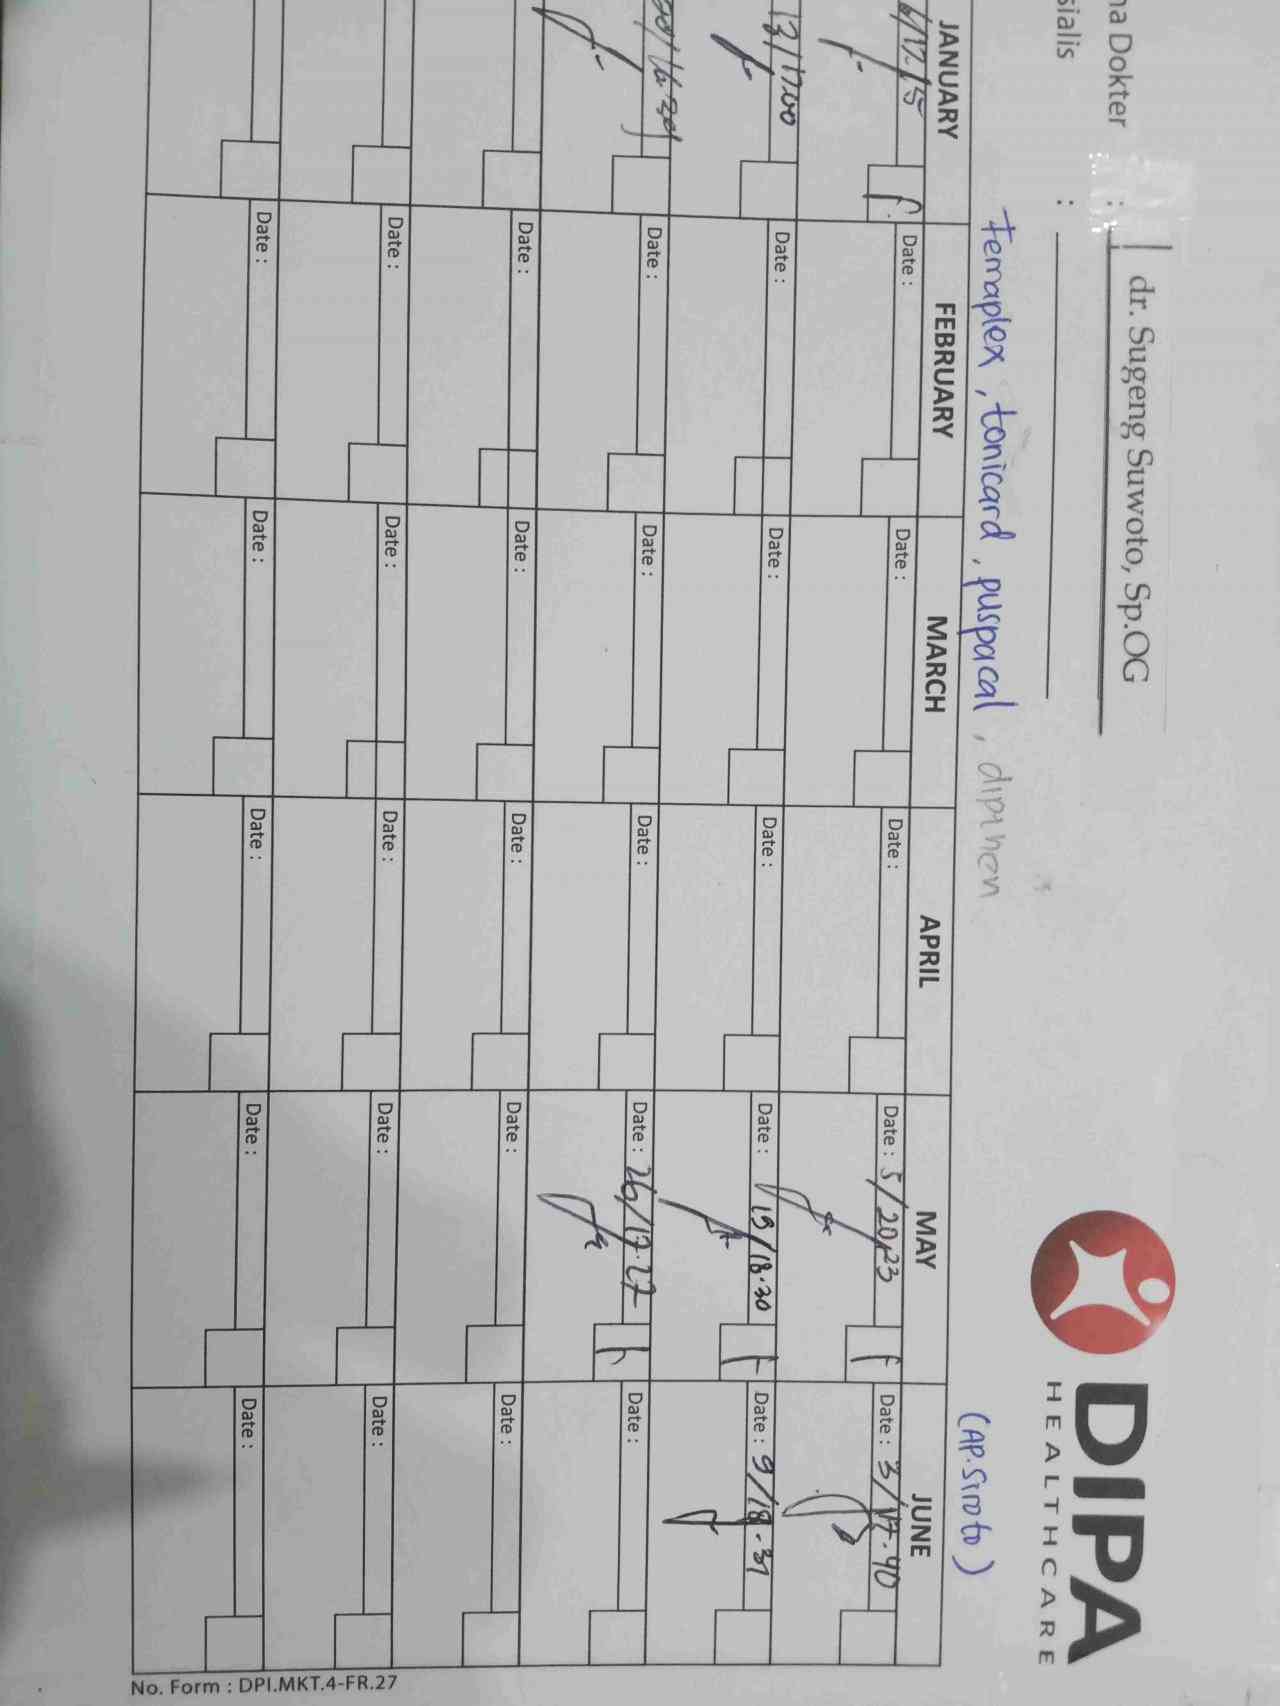 na Dokter : dr. Sugeng Suwoto, Sp.OG
sialis :
DIPA
HEALTHCARE
Temaplex, tonicard, puspacal, dipthen
(AP. Siroto)
JANUARY FEBRUARY MARCH APRIL MAY JUNE
6/17.15 Date : Date : Date : Date : 5/20.23 Date : 3/17.40
f f
13/17.00 Date : Date : Date : Date : 19/18.30 Date : 9/18.31
f
Date : Date : Date : Date : 26/17.27 Date :
Date : Date : Date : Date : Date :
Date : Date : Date : Date : Date :
Date : Date : Date : Date : Date :
No. Form : DPI.MKT.4-FR.27